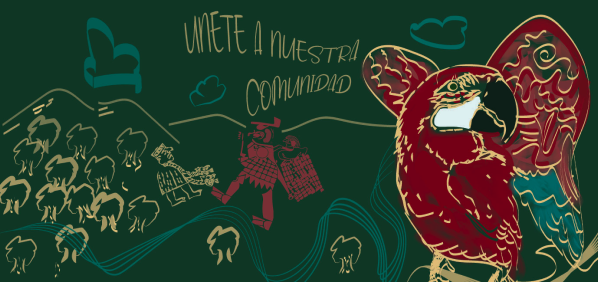 UNETE A NUESTRA
COMUNIDAD